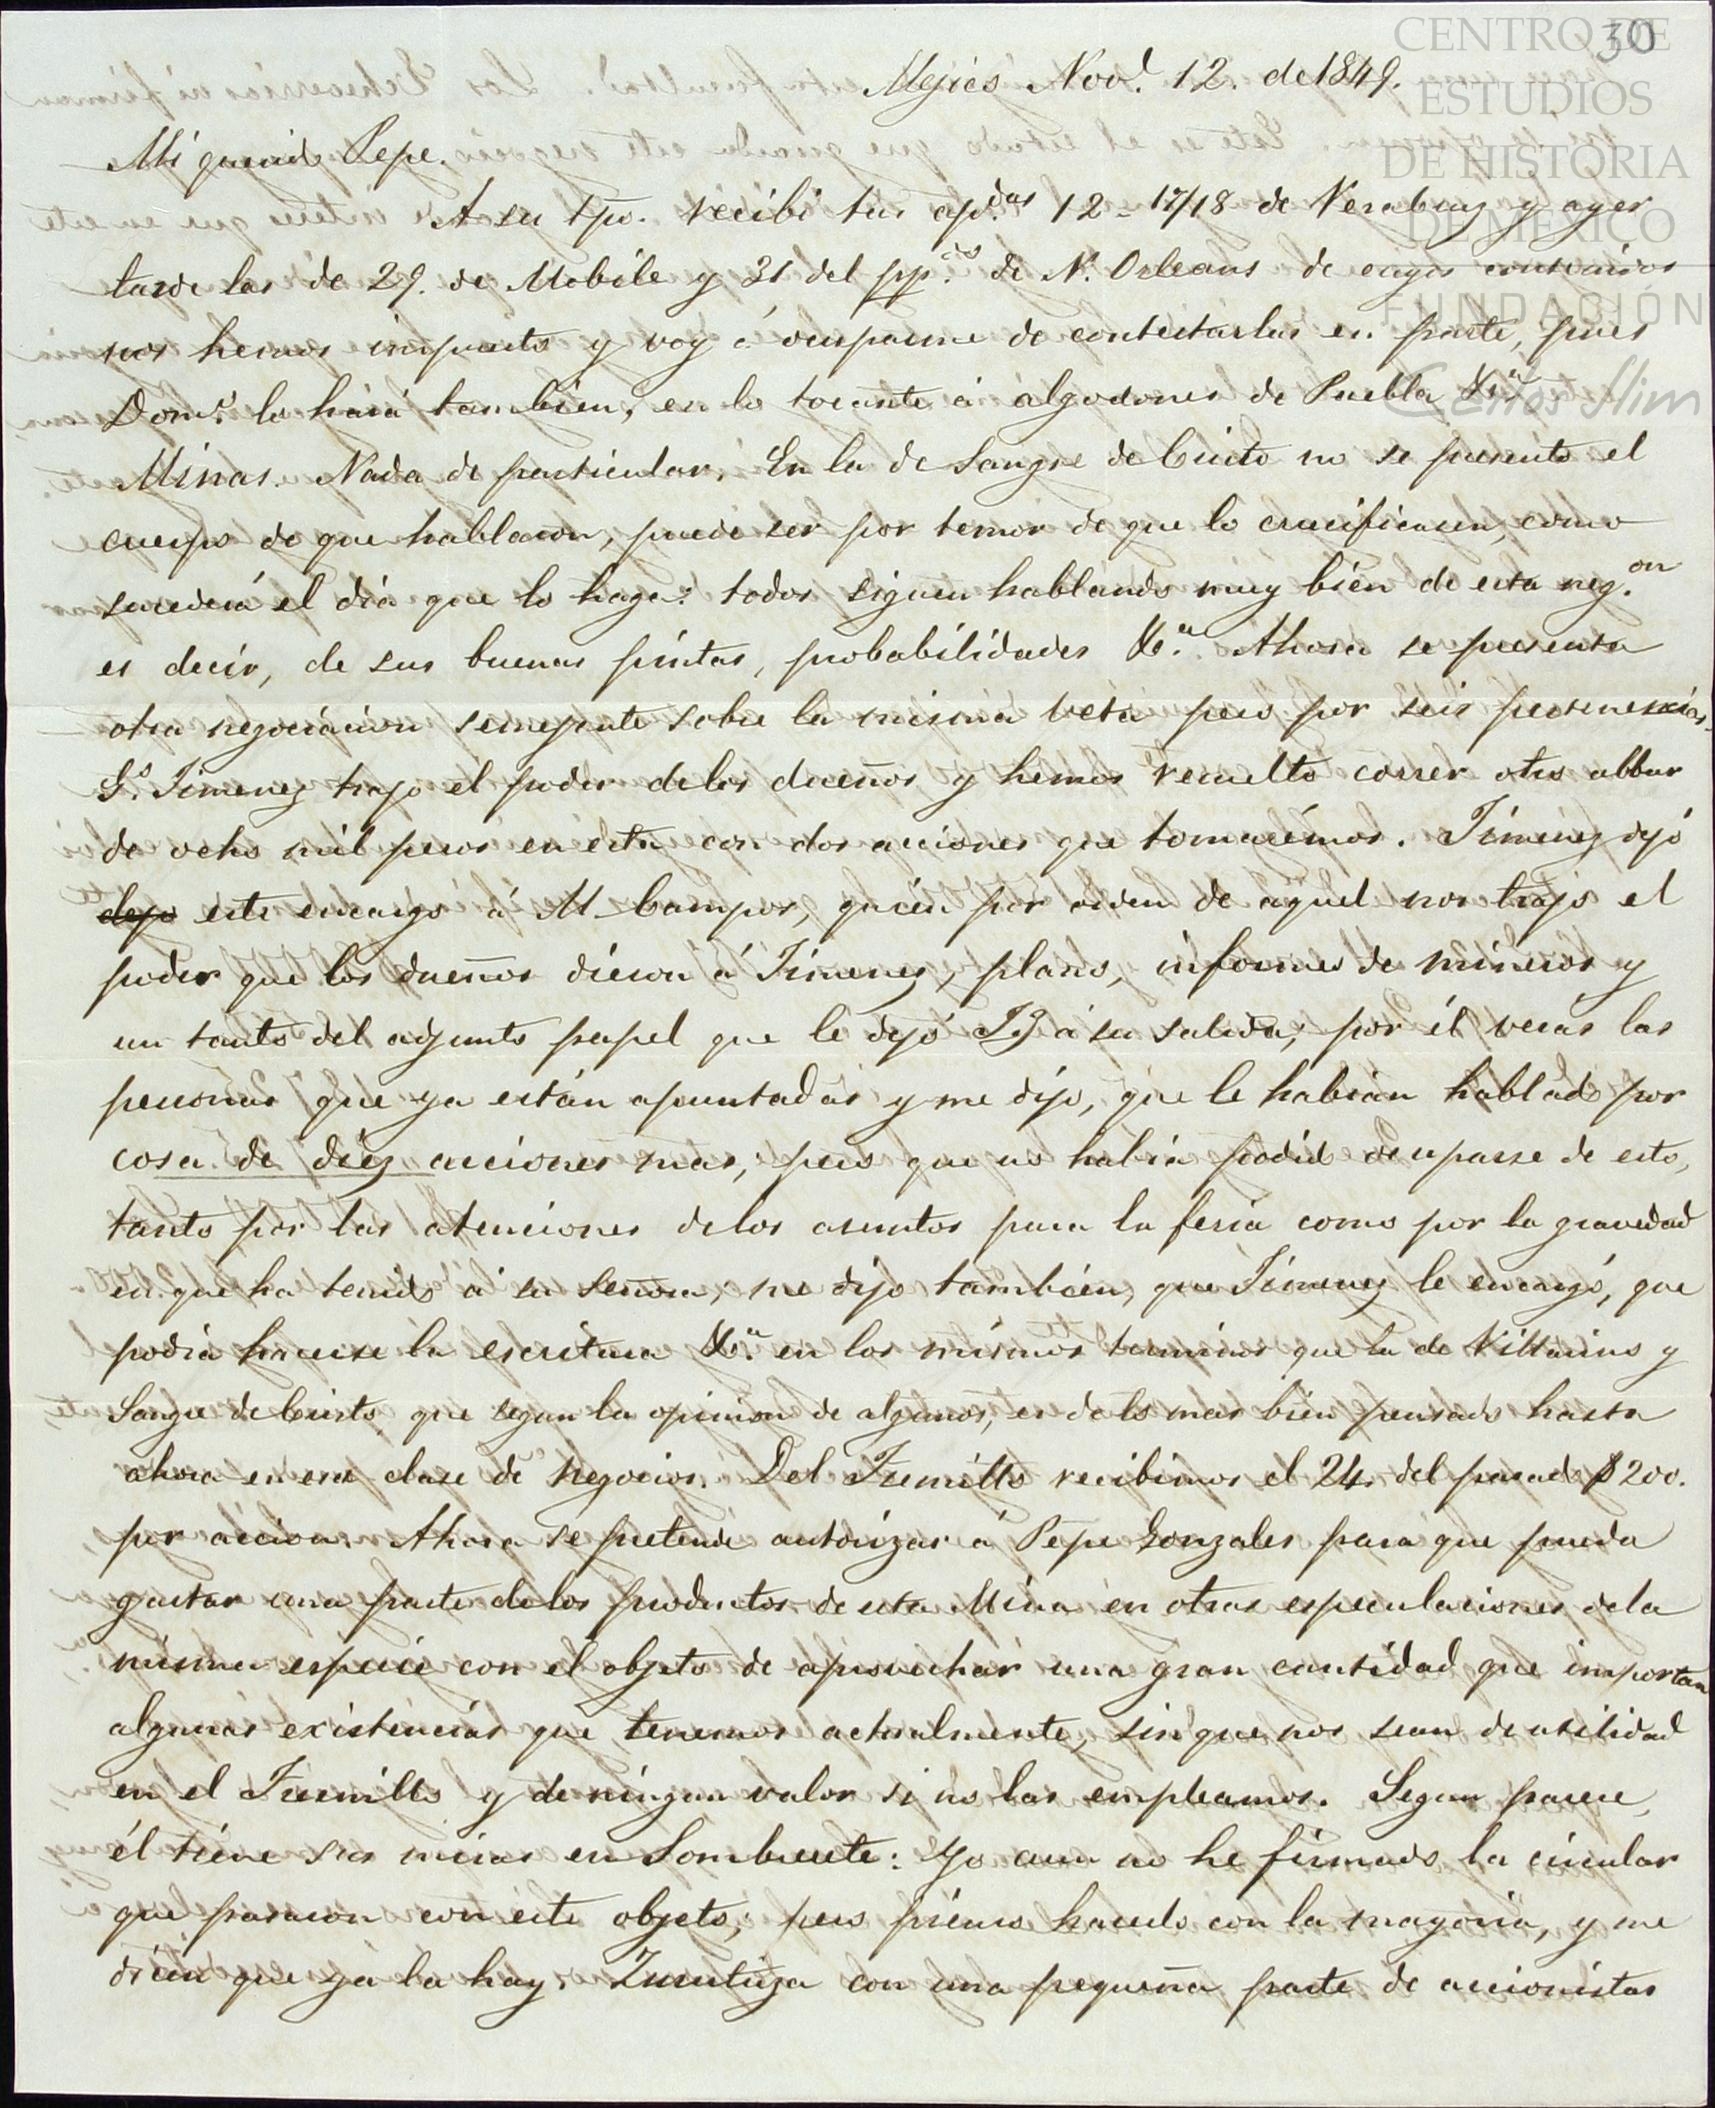 30
CENTRO DE
ESTUDIOS
DE HISTORIA
DE MÉXICO
FUNDACIÓN
Carlos Slim
Mejico Nov.e 12. de 1849.
Mi querido Pepe.
A su tpo. recibi tus ap.das 12 - 17/18 de Verabruz y ayer
tarde las de 29. de Mobile y 31 del pp.do de N. Orleans de cuyos contenidos
nos hemos impuesto y voy á ocuparme de contestarlas en parte, pues
Dom.o lo hará tambien, en lo tocante á algodones de Puebla &.a
Minas. Nada de particular. En la de Sangre de Cristo no se presentó el
cuerpo de que hablaron, puede ser por temor de que lo crucificasen, como
sucederá el dia que lo haga: todos siguen hablando muy bien de esta neg.on
es decir, de sus buenas pintas, probabilidades &.a Ahora se presenta
otra negociacion semejante sobre la misma veta pero por seis pertenencias.
G.o Jimenez trajo el poder delos dueños y hemos resuelto correr otro albur
de ocho mil pesos en esta con dos acciones que tomarémos. Jimenez dejó
dejo este encargo á M Campos, quién por orden de aquel nos trajo el
poder que los dueños dieron á Jimenez, plano, informes de mineros y
un tanto del adjunto papel que le dejó JJ á su salida; por él verás las
personas que ya están apuntadas y me dijo, que le habian hablado por
cosa de diez acciones mas, pero que no habia podido ocuparse de esto,
tanto por las atenciones delos asuntos para la feria como por la gravedad
en que ha tenido á su Señora; me dijo tambien, que Jimenez le encargó, que
podia hacerse la escritura &.a en los mismos terminos que la de Vittorino y
Sangre de Cristo que segun la opinion de algunos, es de lo mas bien pensado hasta
ahora en esa clase de negocios. Del Fresnillo recibimos el 24. del pasado $200.
por accion. Ahora se pretende autorizar á Pepe Gonzales para que pueda
gastar una parte delos productos de esta Mina en otras especulaciones dela
misma especie con el objeto de aprovechar una gran cantidad que importan
algunas existencias que tenemos actualmente, sin que nos sean de utilidad
en el Fresnillo y de ningun valor si no las empleamos. Segun parece,
él tiene sus miras en Sombrerete: Yo aun no he firmado la circular
que pasaron con este objeto; pero pienso hacerlo con la mayoria, y me
dicen que ya la hay. Zurutuza con una pequeña parte de accionistas